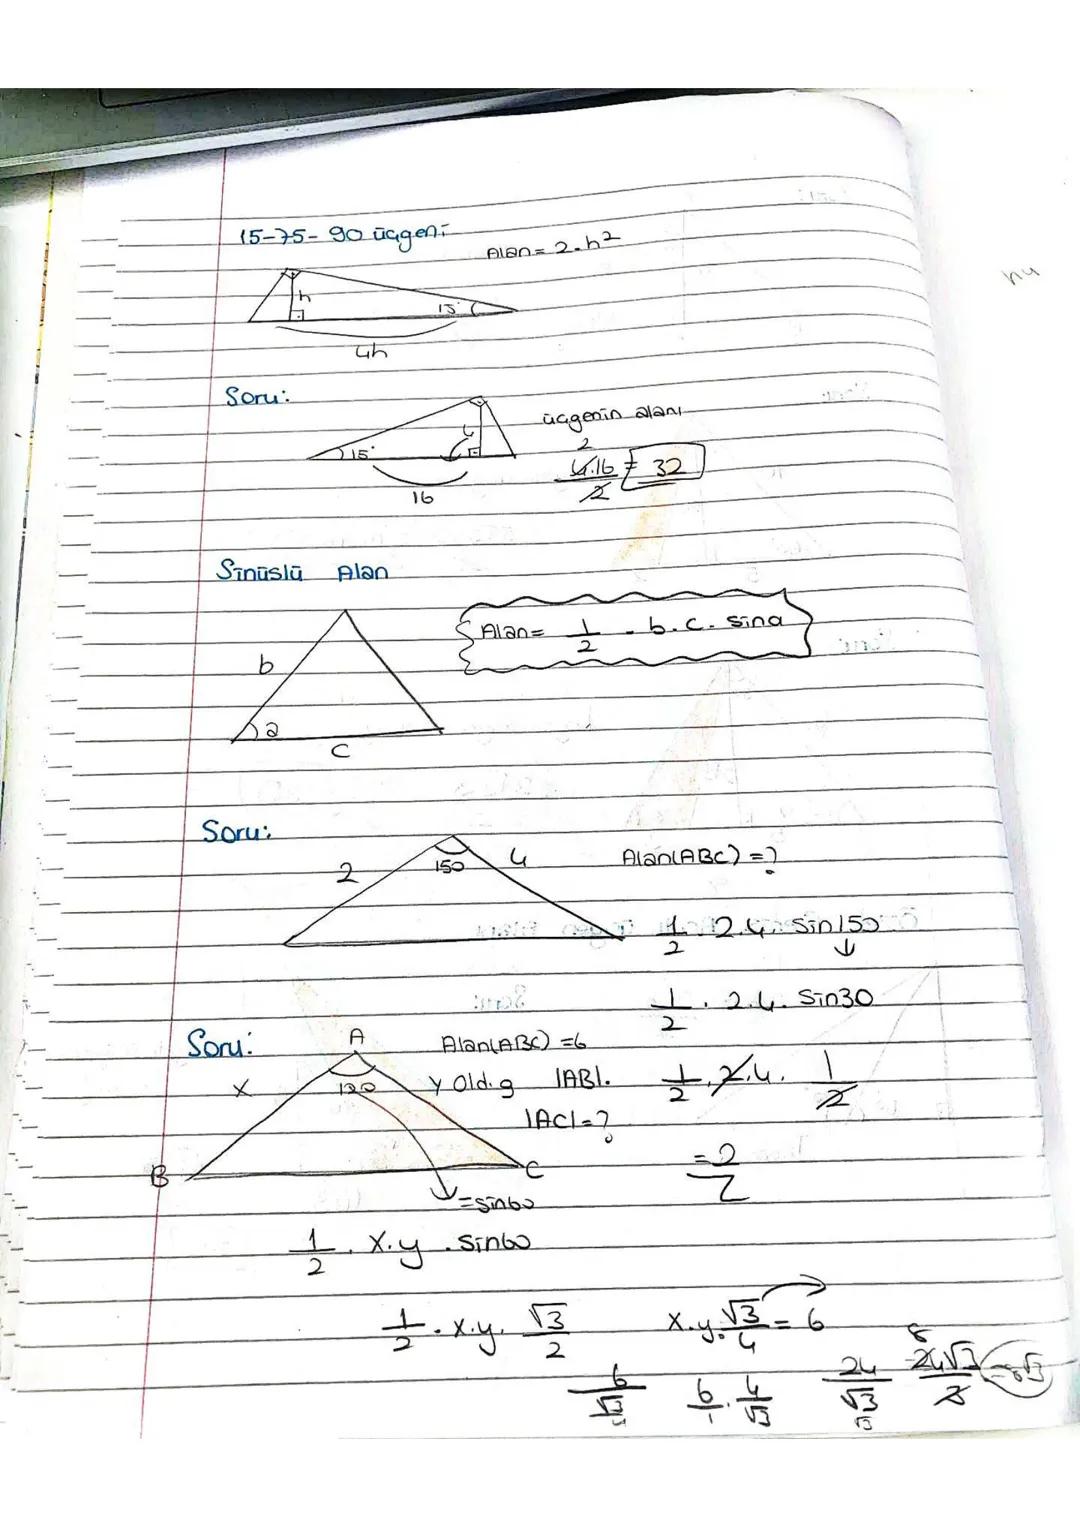 15-75-90 üçgeni
Alan = 2.h²
h
15°
4h
Soru:
üçgenin alanı
15°
4
16
4.16 / 2 = 32
2
Sinüslü Alan
Alan = 1/2 . b.c. sina
b
a
c
Soru:
2
150
4
Alan(ABC) = ?
1/2 . 2.4. sin150
↓
1/2 . 2.4. sin30
Soru:
A
Alan(ABC) = 6
x
120
y old.g |AB|.
|AC| = ?
1/2 . 2.4. 1/2
= 2
B
C
= sin60
1/2 . x.y . sin60
1/2 . x.y. √3/2
x.y. √3/4 = 6
6 / (√3/4)
6/1 . 4/√3
24/√3
√3
8
24√3/3 = 8√3